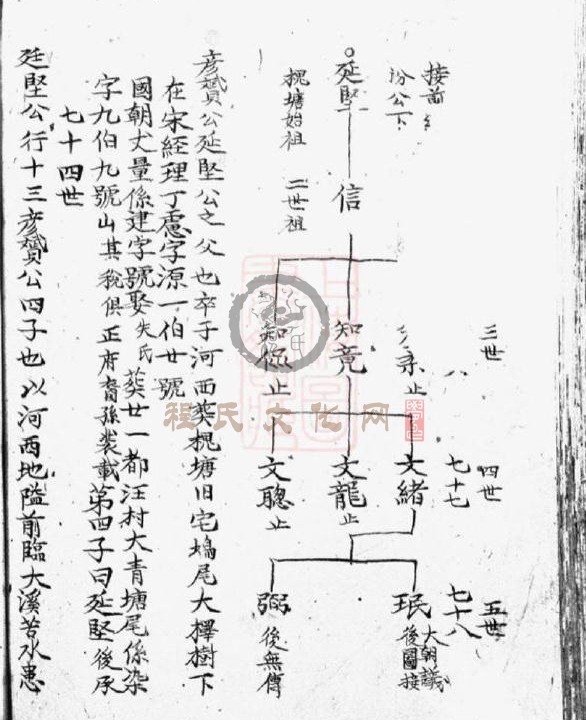 接前
汾公下
延堅
槐塘始祖
信
二世祖
三世
知
知亮
止
四世
七十七
文緒
文龍
止
文聰
止
五世
七十八
珉
大朝議
後圖接
弼
後無傳
彥贇公延堅公之父也卒于河西葬槐塘旧宅塢尾大檡樹下
在宋經理丁慮字源一伯廿號
國朝丈量係建字號娶失氏葬廿一都汪村大青塘尾係染
字九伯九號山其稅俱正府裔孫裳載第四子曰延堅後承
七十四世
延堅公行十三彥贇公四子也以河西地隘前臨大溪苦水患
程氏文化网